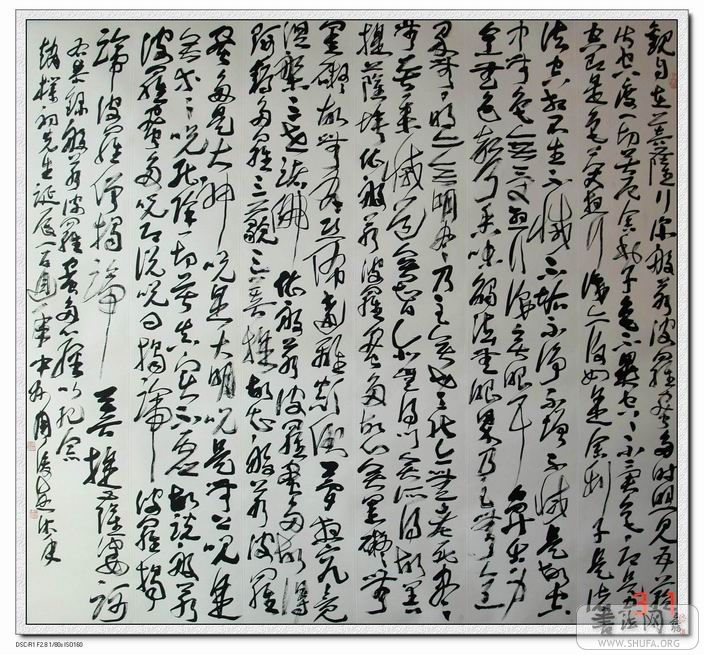 觀自在菩薩行深般若波羅蜜多時照見五蘊
皆空度一切苦厄舍利子色不異空空不異色色即是
空空即是色受想行識亦復如是舍利子是諸
法空相不生不滅不垢不淨不增不減是故空
中無色無受想行識無眼耳鼻舌身
意無色聲香味觸法無眼界乃至無意
識界無無明亦無無明盡乃至無老死亦無老死盡
無苦集滅道無智亦無得以無所得故菩
提薩埵依般若波羅蜜多故心無罣礙無
罣礙故無有恐怖遠離顛倒夢想究竟
涅槃三世諸佛依般若波羅蜜多故得
阿耨多羅三藐三菩提故知般若波羅
蜜多是大神咒是大明咒是無上咒是
無等等咒能除一切苦真實不虛故說般若
波羅蜜多咒即說咒曰揭諦波羅揭
諦波羅僧揭諦菩提薩婆訶
右恭錄般若波羅蜜多心經以紀念
趙樸初先生誕辰一百週年中州周俊杰沐手
書法网
WWW.SHUFA.ORG
DSC-R1 F2.8 1/80s ISO160